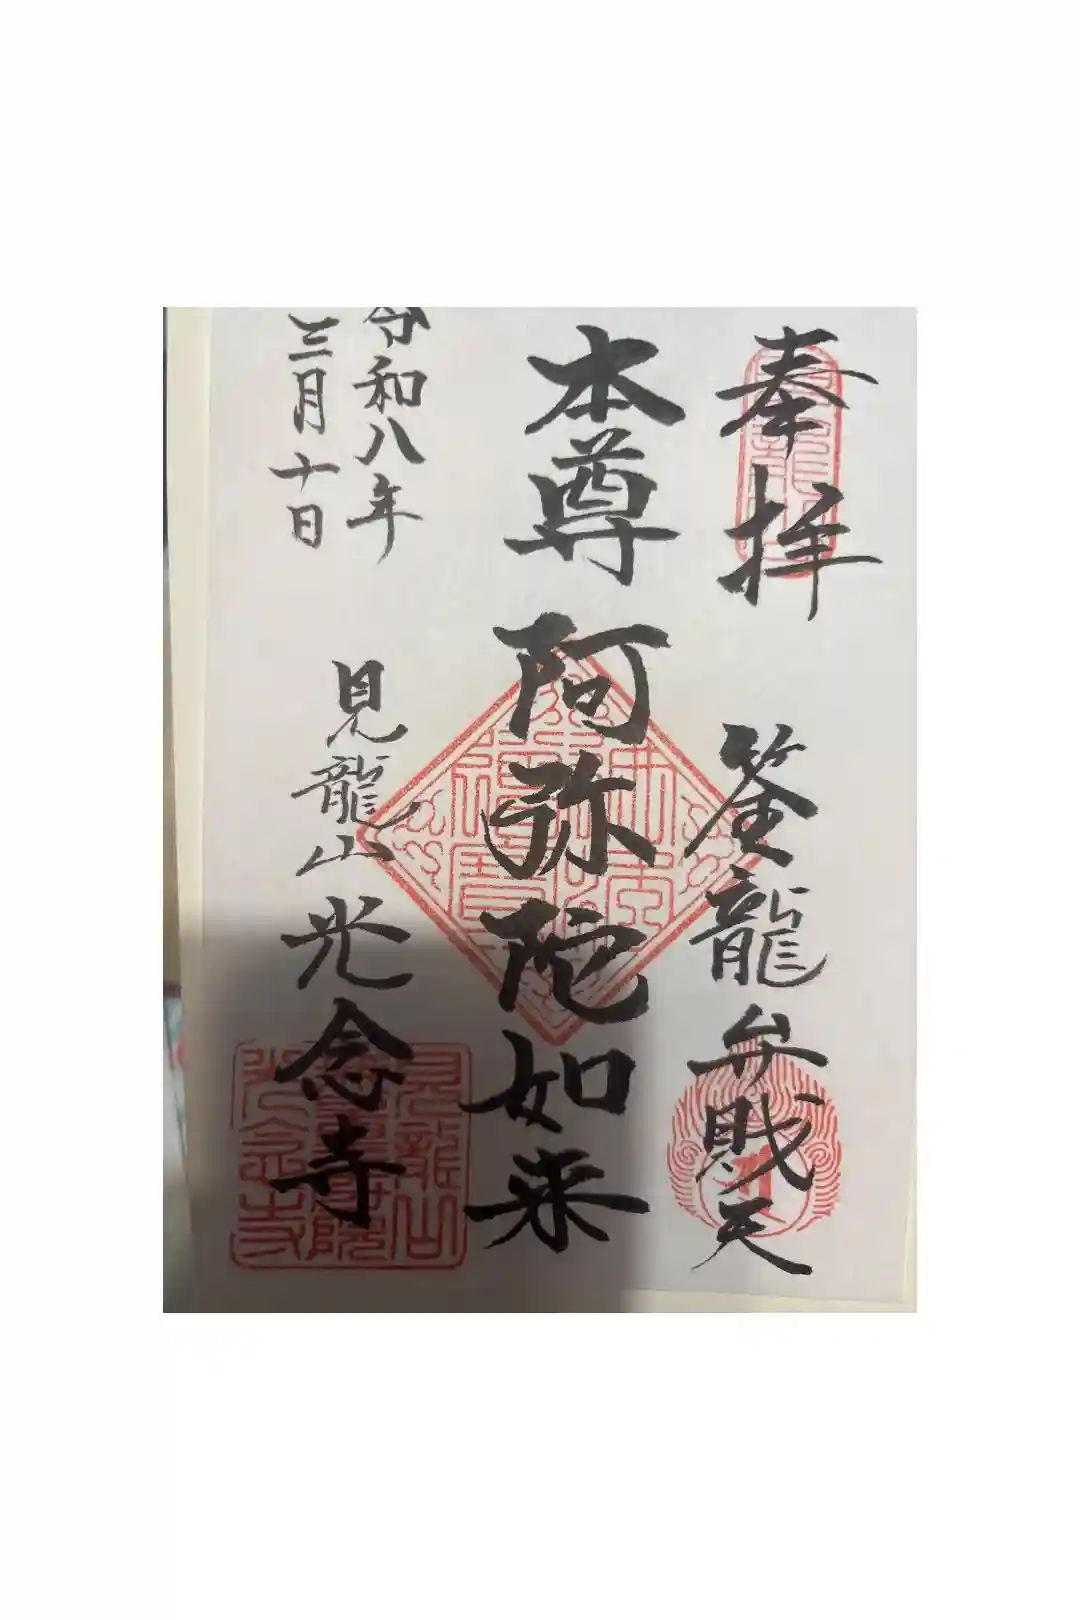 奉拝
筌龍弁財天
本尊 阿弥陀如来
令和八年
三月十日
見龍山光念寺
見龍山
光念寺